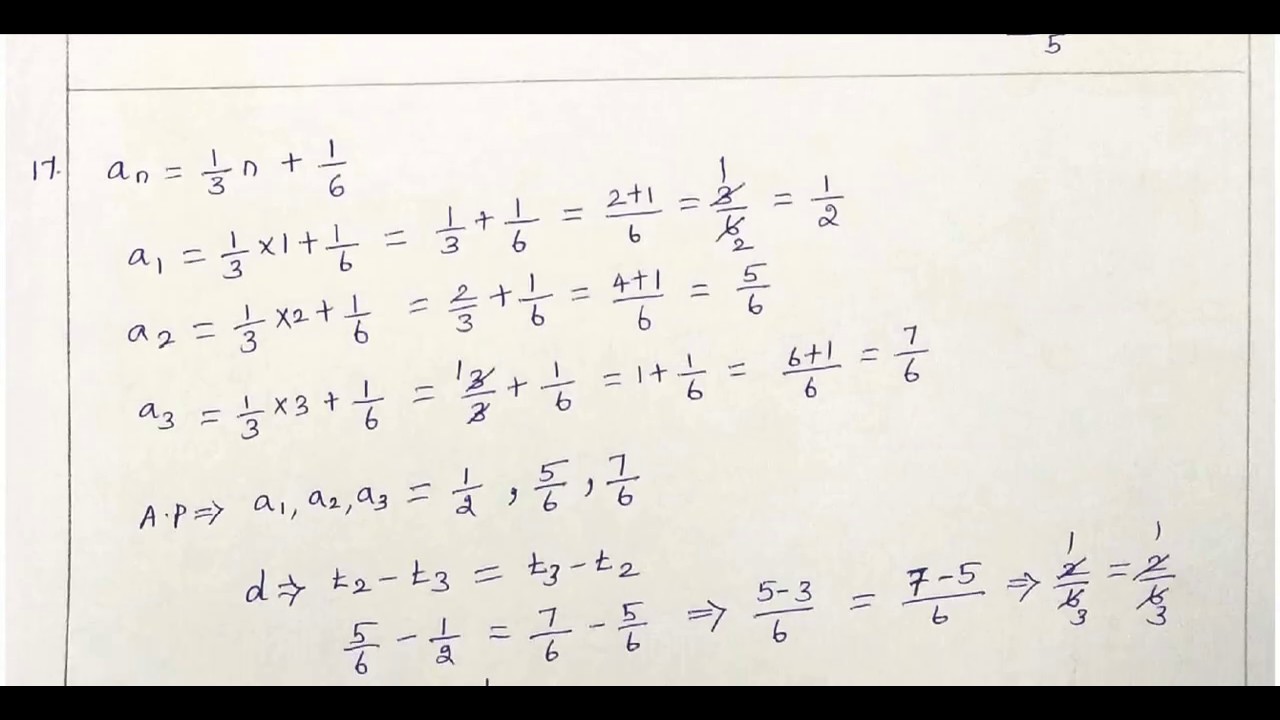 5
17. aₙ = 1/3 n + 1/6
a₁ = 1/3 ×1 + 1/6 = 1/3 + 1/6 = 2+1/6 = 3/6 1 2 = 1/2
a₂ = 1/3 ×2 + 1/6 = 2/3 + 1/6 = 4+1/6 = 5/6
a₃ = 1/3 ×3 + 1/6 = 1 3/3 + 1/6 = 1 + 1/6 = 6+1/6 = 7/6
A.P ⇒ a₁, a₂, a₃ = 1/2 , 5/6 , 7/6
d ⇒ t₂ - t₃ = t₃ - t₂
5/6 - 1/2 = 7/6 - 5/6 ⇒ 5-3/6 = 7-5/6 ⇒ 2/6 1 3 = 2/6 1 3